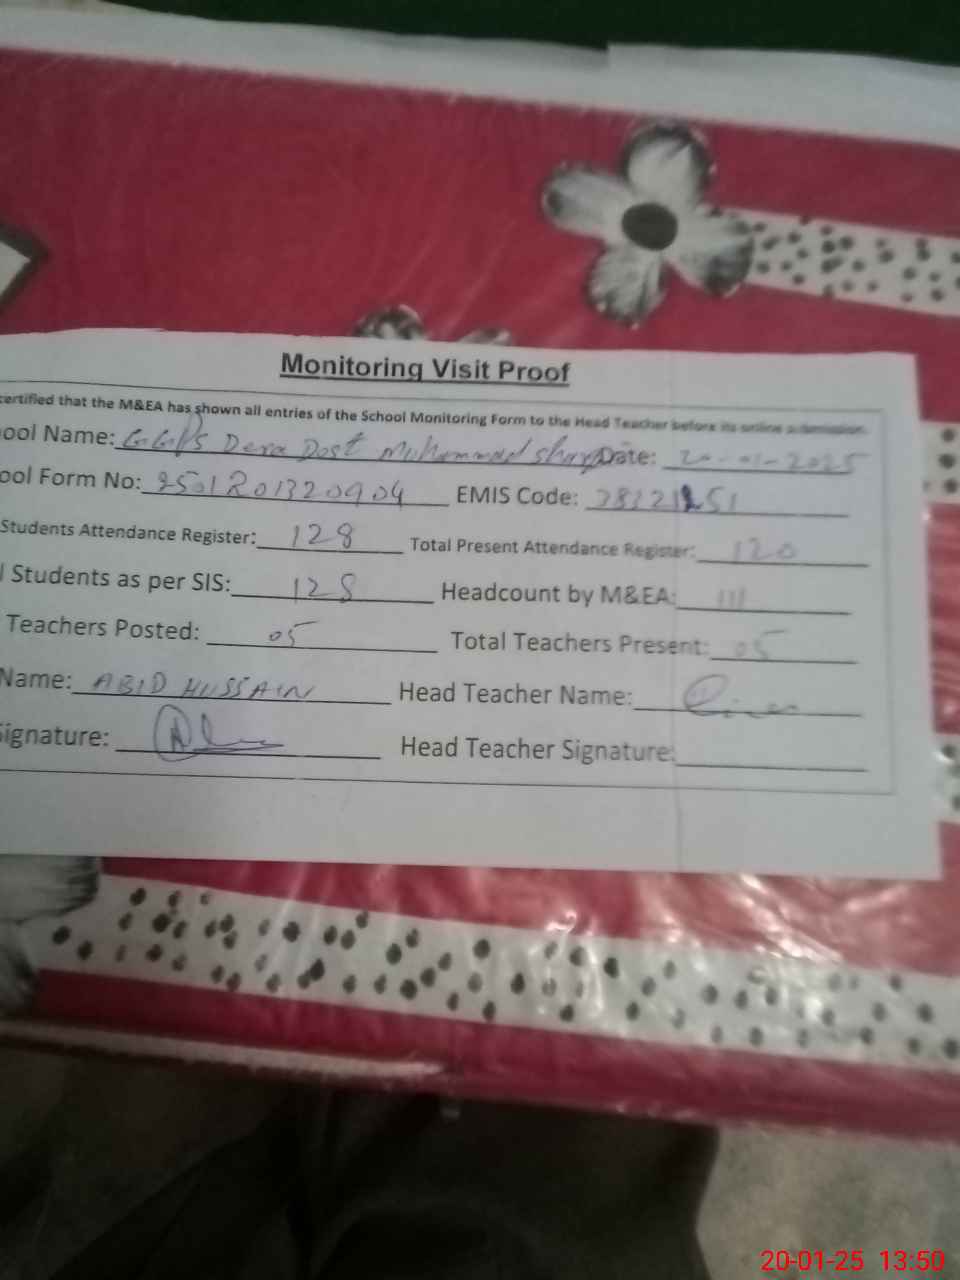 Monitoring Visit Proof
certified that the M&EA has shown all entries of the School Monitoring Form to the Head Teacher before its online submission.
ool Name: GGPS Dera Dost Muhammad Date: 20-01-2025
ool Form No: 2501201320904 EMIS Code:
Students Attendance Register: 128 Total Present Attendance Register: 120
l Students as per SIS: 128 Headcount by M&EA: 111
Teachers Posted: 05 Total Teachers Present: 05
Name: ABID HUSSAIN Head Teacher Name:
ignature: Head Teacher Signature:
20-01-25 13:50